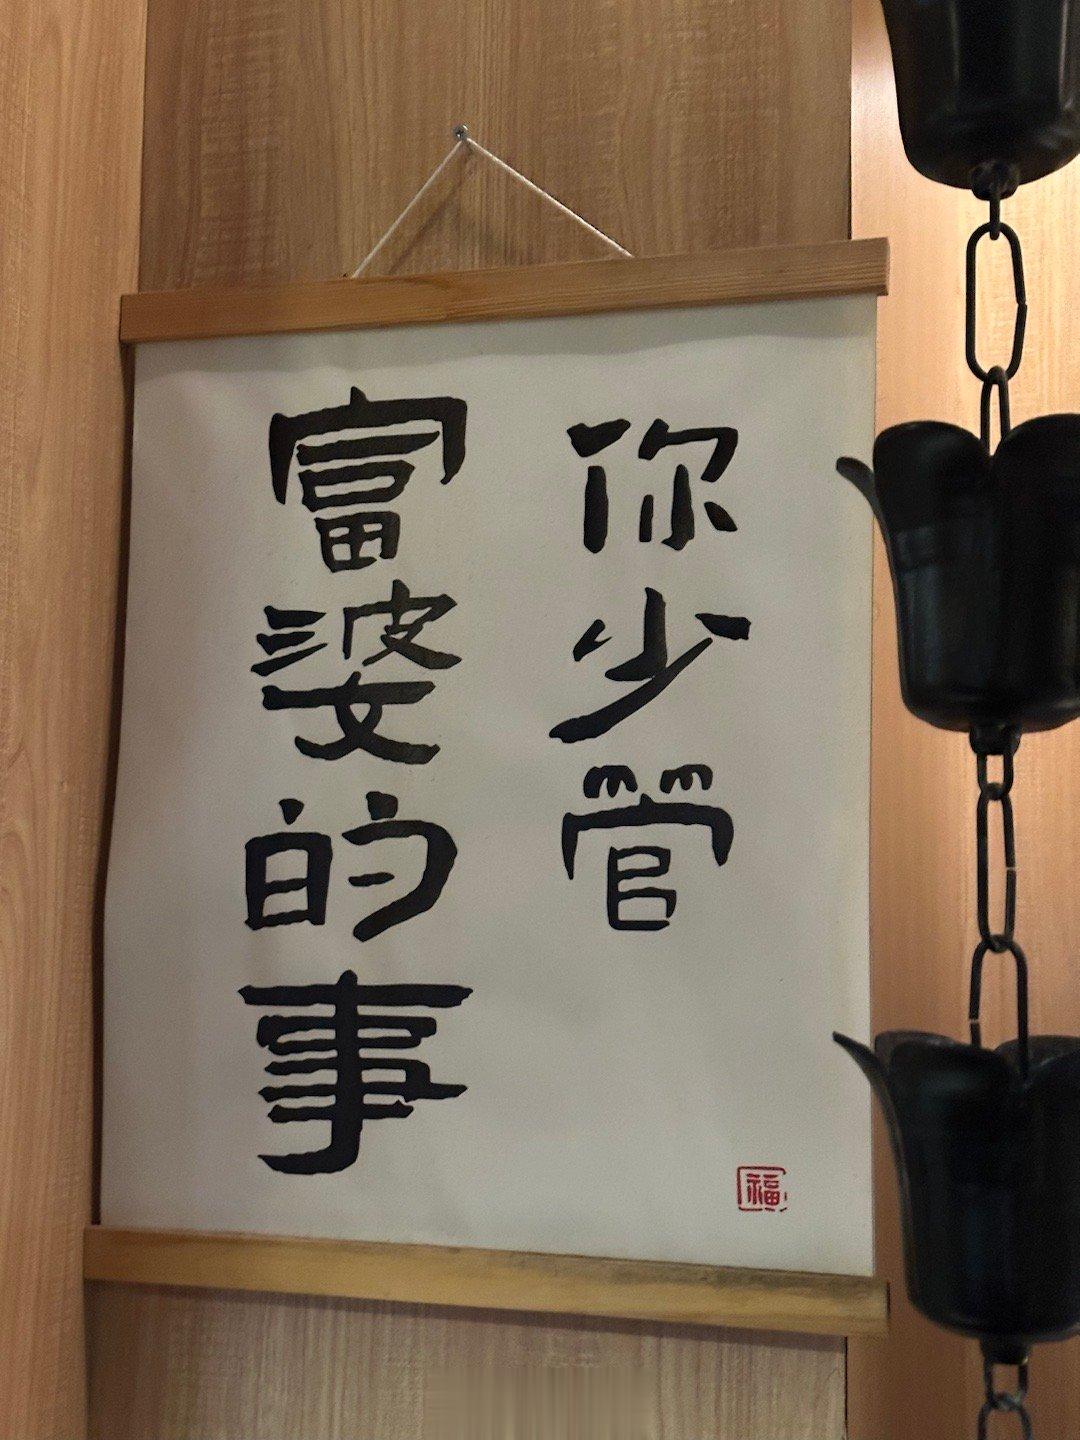 你少管
富婆的事
福